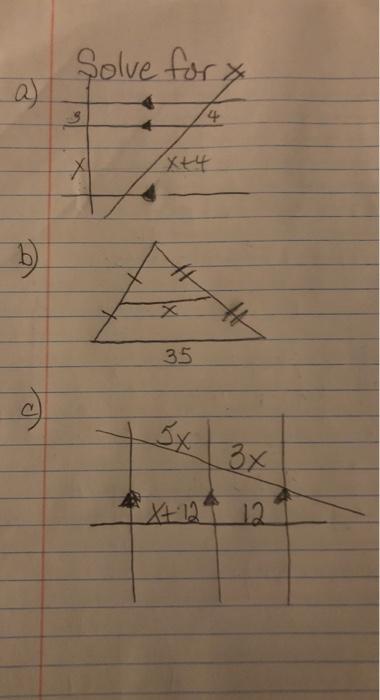 Solve for x
a)
3
4
x
x+4
b)
x
35
c)
5x
3x
x+12
12